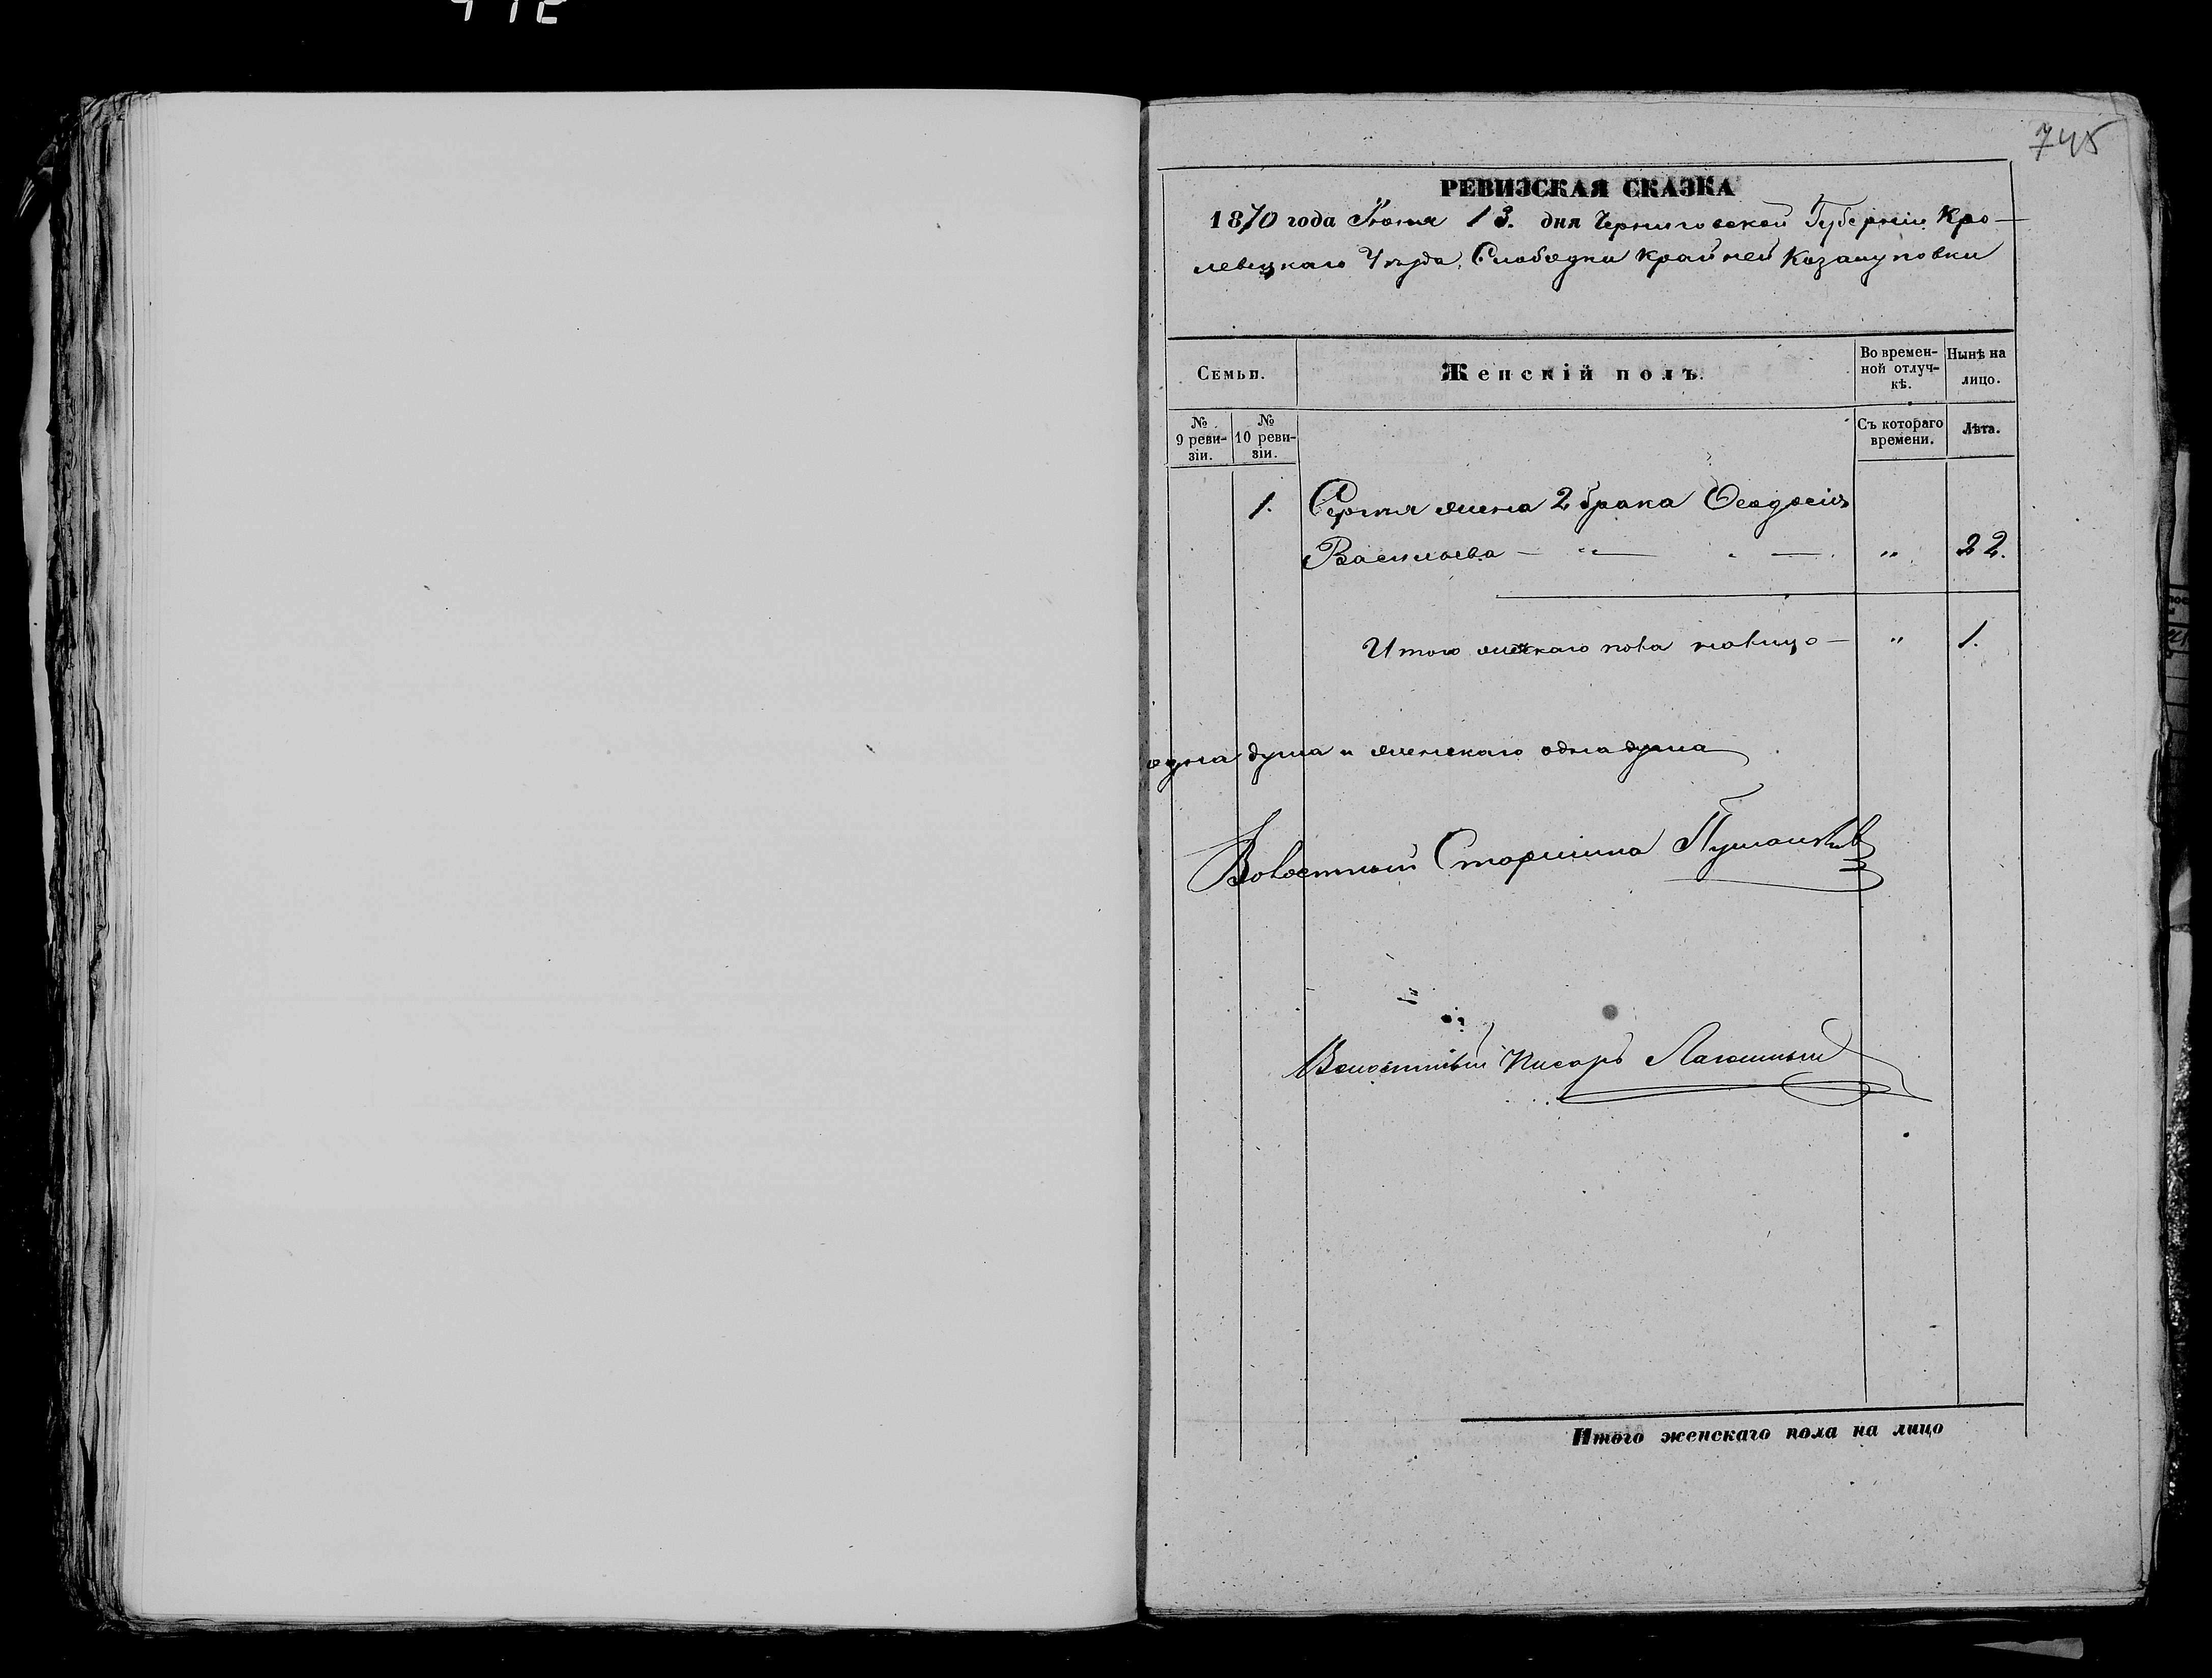 745
РЕВИЗСКАЯ СКАЗКА
1870 года Июня 13. дня Черниговской Губерніи Кро-
левецкаго Уезда, Слободки Крайней Козацуповки
Семьи.
Женскій полъ.
Во времен-
ной отлуч-
кѣ.
Нынѣ на
лицо.
№
9 реви-
зіи.
№
10 реви-
зіи.
Съ котораго
времени.
Лѣта.
1. Сергѣя жена 2 брака Ѳеодосія
Васильева — „ — „ 22.
Итого женскаго пола налицо — „ 1.
одна душа и женскаго одна душа
Волостный Старшина
Волостный Писарь
Итого женскаго пола на лицо